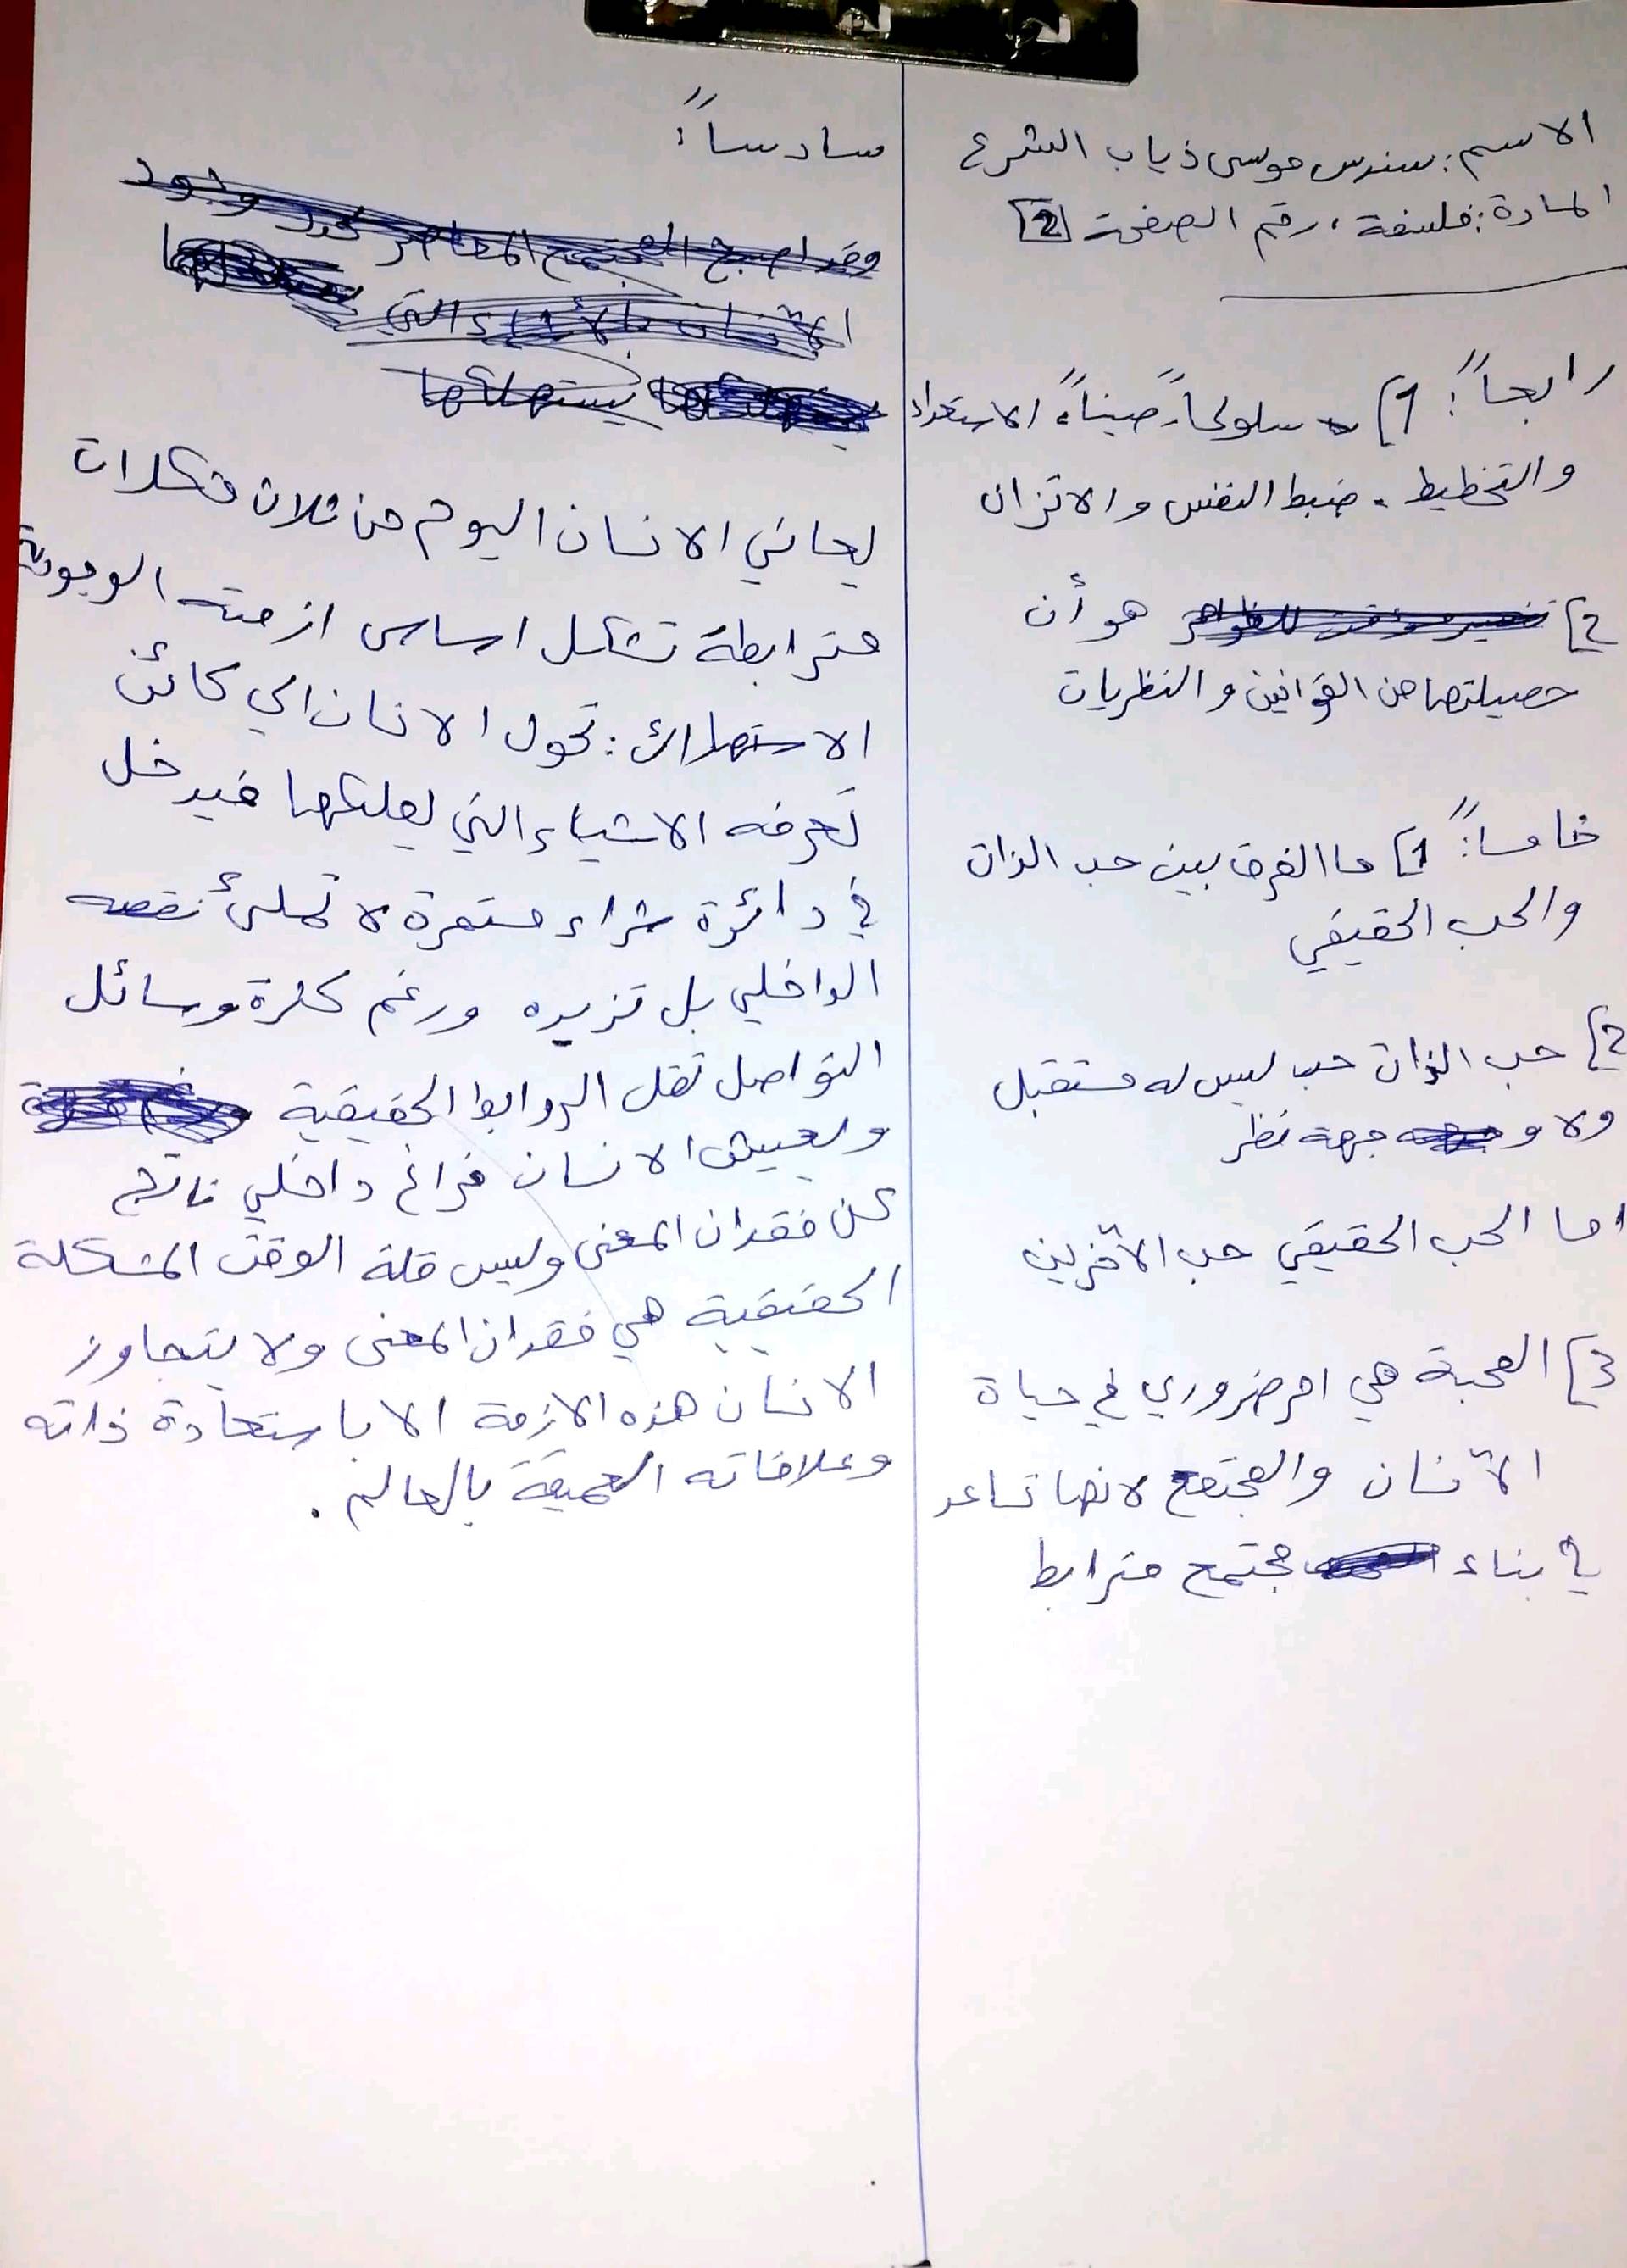 الاسم: سندس موسى ذياب الشرع
المادة: فلسفة، رقم الصفحة [2]
رابعاً: 1) سلوكاً رصيناً، الاستعداد
والتخطيط. ضبط النفس والاتزان
2) هو أن
حصيلتها من القوانين والنظريات
خامساً: 1) ما الفرق بين حب الذات
والحب الحقيقي
2) حب الذات حب ليس له مستقبل
ولا و جهة نظر
اما الحب الحقيقي حب الآخرين
3) المحبة هي امر ضروري في حياة
الأنسان والمجتمع لانها تساعد
في بناء مجتمع مترابط
سادساً:
وقد اصبح المجتمع المعاصر يحدد وجود
الأنسان بالأشياء التي
يستهلكها
يعاني الانسان اليوم من ثلاث مشكلات
مترابطة تشكل اساس ازمته الوجودية
الاستهلاك: تحول الانسان الى كائن
تعرفه الاشياء التي يملكها فيدخل
في دائرة شراء مستمرة لا تملئ نقصه
الداخلي بل تزيده ورغم كثرة وسائل
التواصل تقل الروابط الحقيقية
ويعيش الانسان فراغ داخلي ناتج
عن فقدان المعنى وليس قلة الوقت المشكلة
الحقيقية هي فقدان المعنى ولا يتجاوز
الانسان هذه الازمة الا باستعادة ذاته
وعلاقاته العميقة بالعالم.